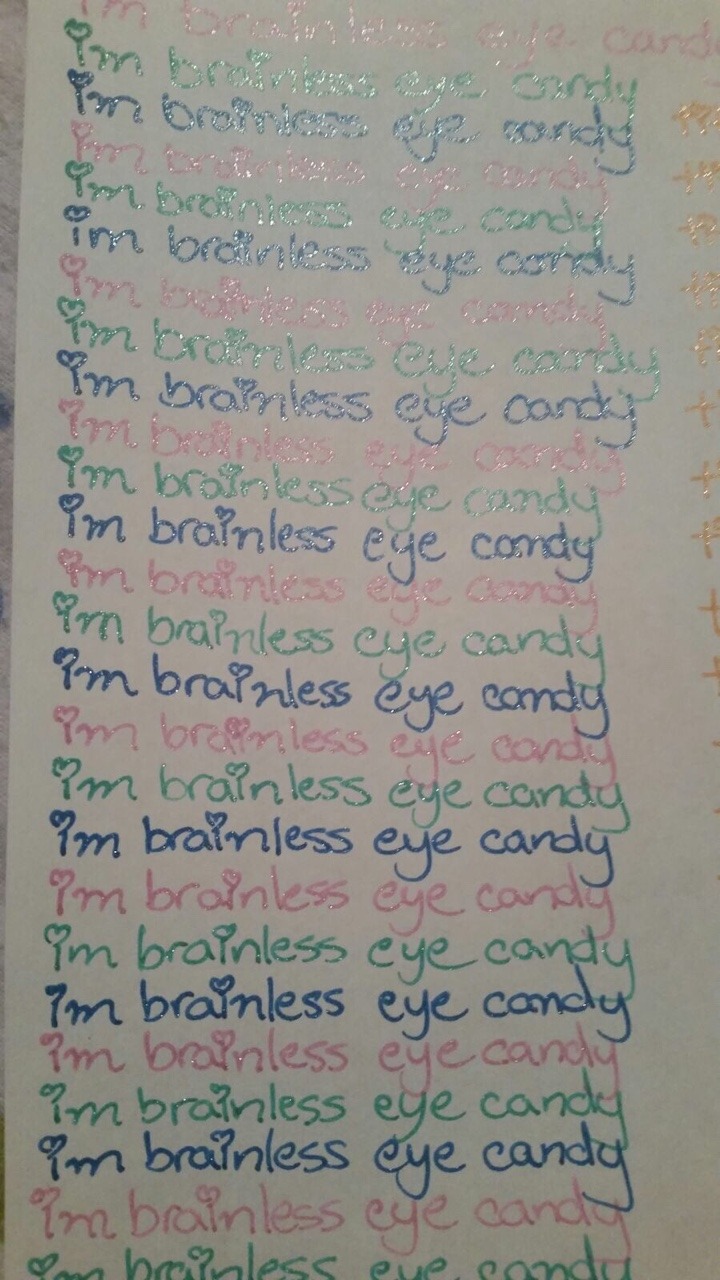 im brainless eye candy
im brainless eye candy
im brainless eye candy
im brainless eye candy
im brainless eye candy
im brainless eye candy
im brainless eye candy
im brainless eye candy
im brainless eye candy
im brainless eye candy
im brainless eye candy
im brainless eye candy
im brainless eye candy
im brainless eye candy
im brainless eye candy
im brainless eye candy
im brainless eye candy
im brainless eye candy
im brainless eye candy
im brainless eye candy
im brainless eye candy
im brainless eye candy
im brainless eye candy
im brainless eye candy
im brainless eye candy
im brainless eye candy